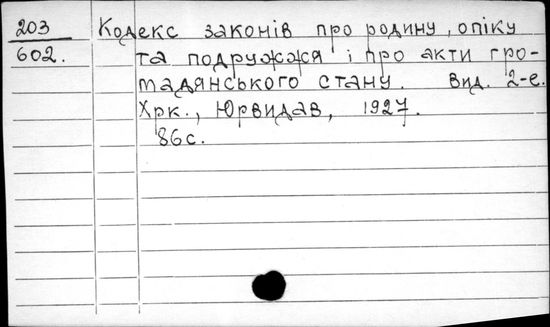 203 Кодекс законів про родину, опіку
602. та подружжя і про акти гро-
мадянського стану. Вид. 2-е.
Хрк., Юрвидав, 1927.
86с.